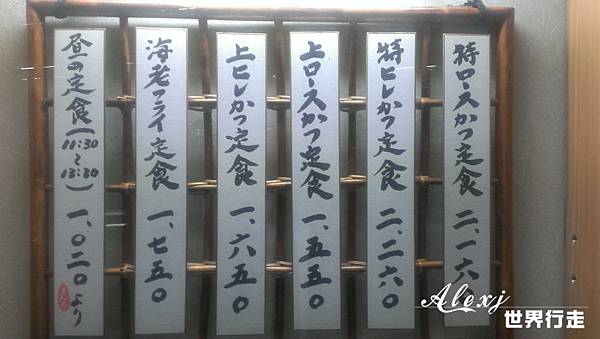 特ロースかつ定食 二、一六
特ヒレかつ定食 二、二六〇
上ロースかつ定食 一、五五〇
上ヒレかつ定食 一、六五〇
海老フライ定食 一、七五〇
昼の定食(11:30~13:30) 一、〇二〇より
Alexj
世界行走